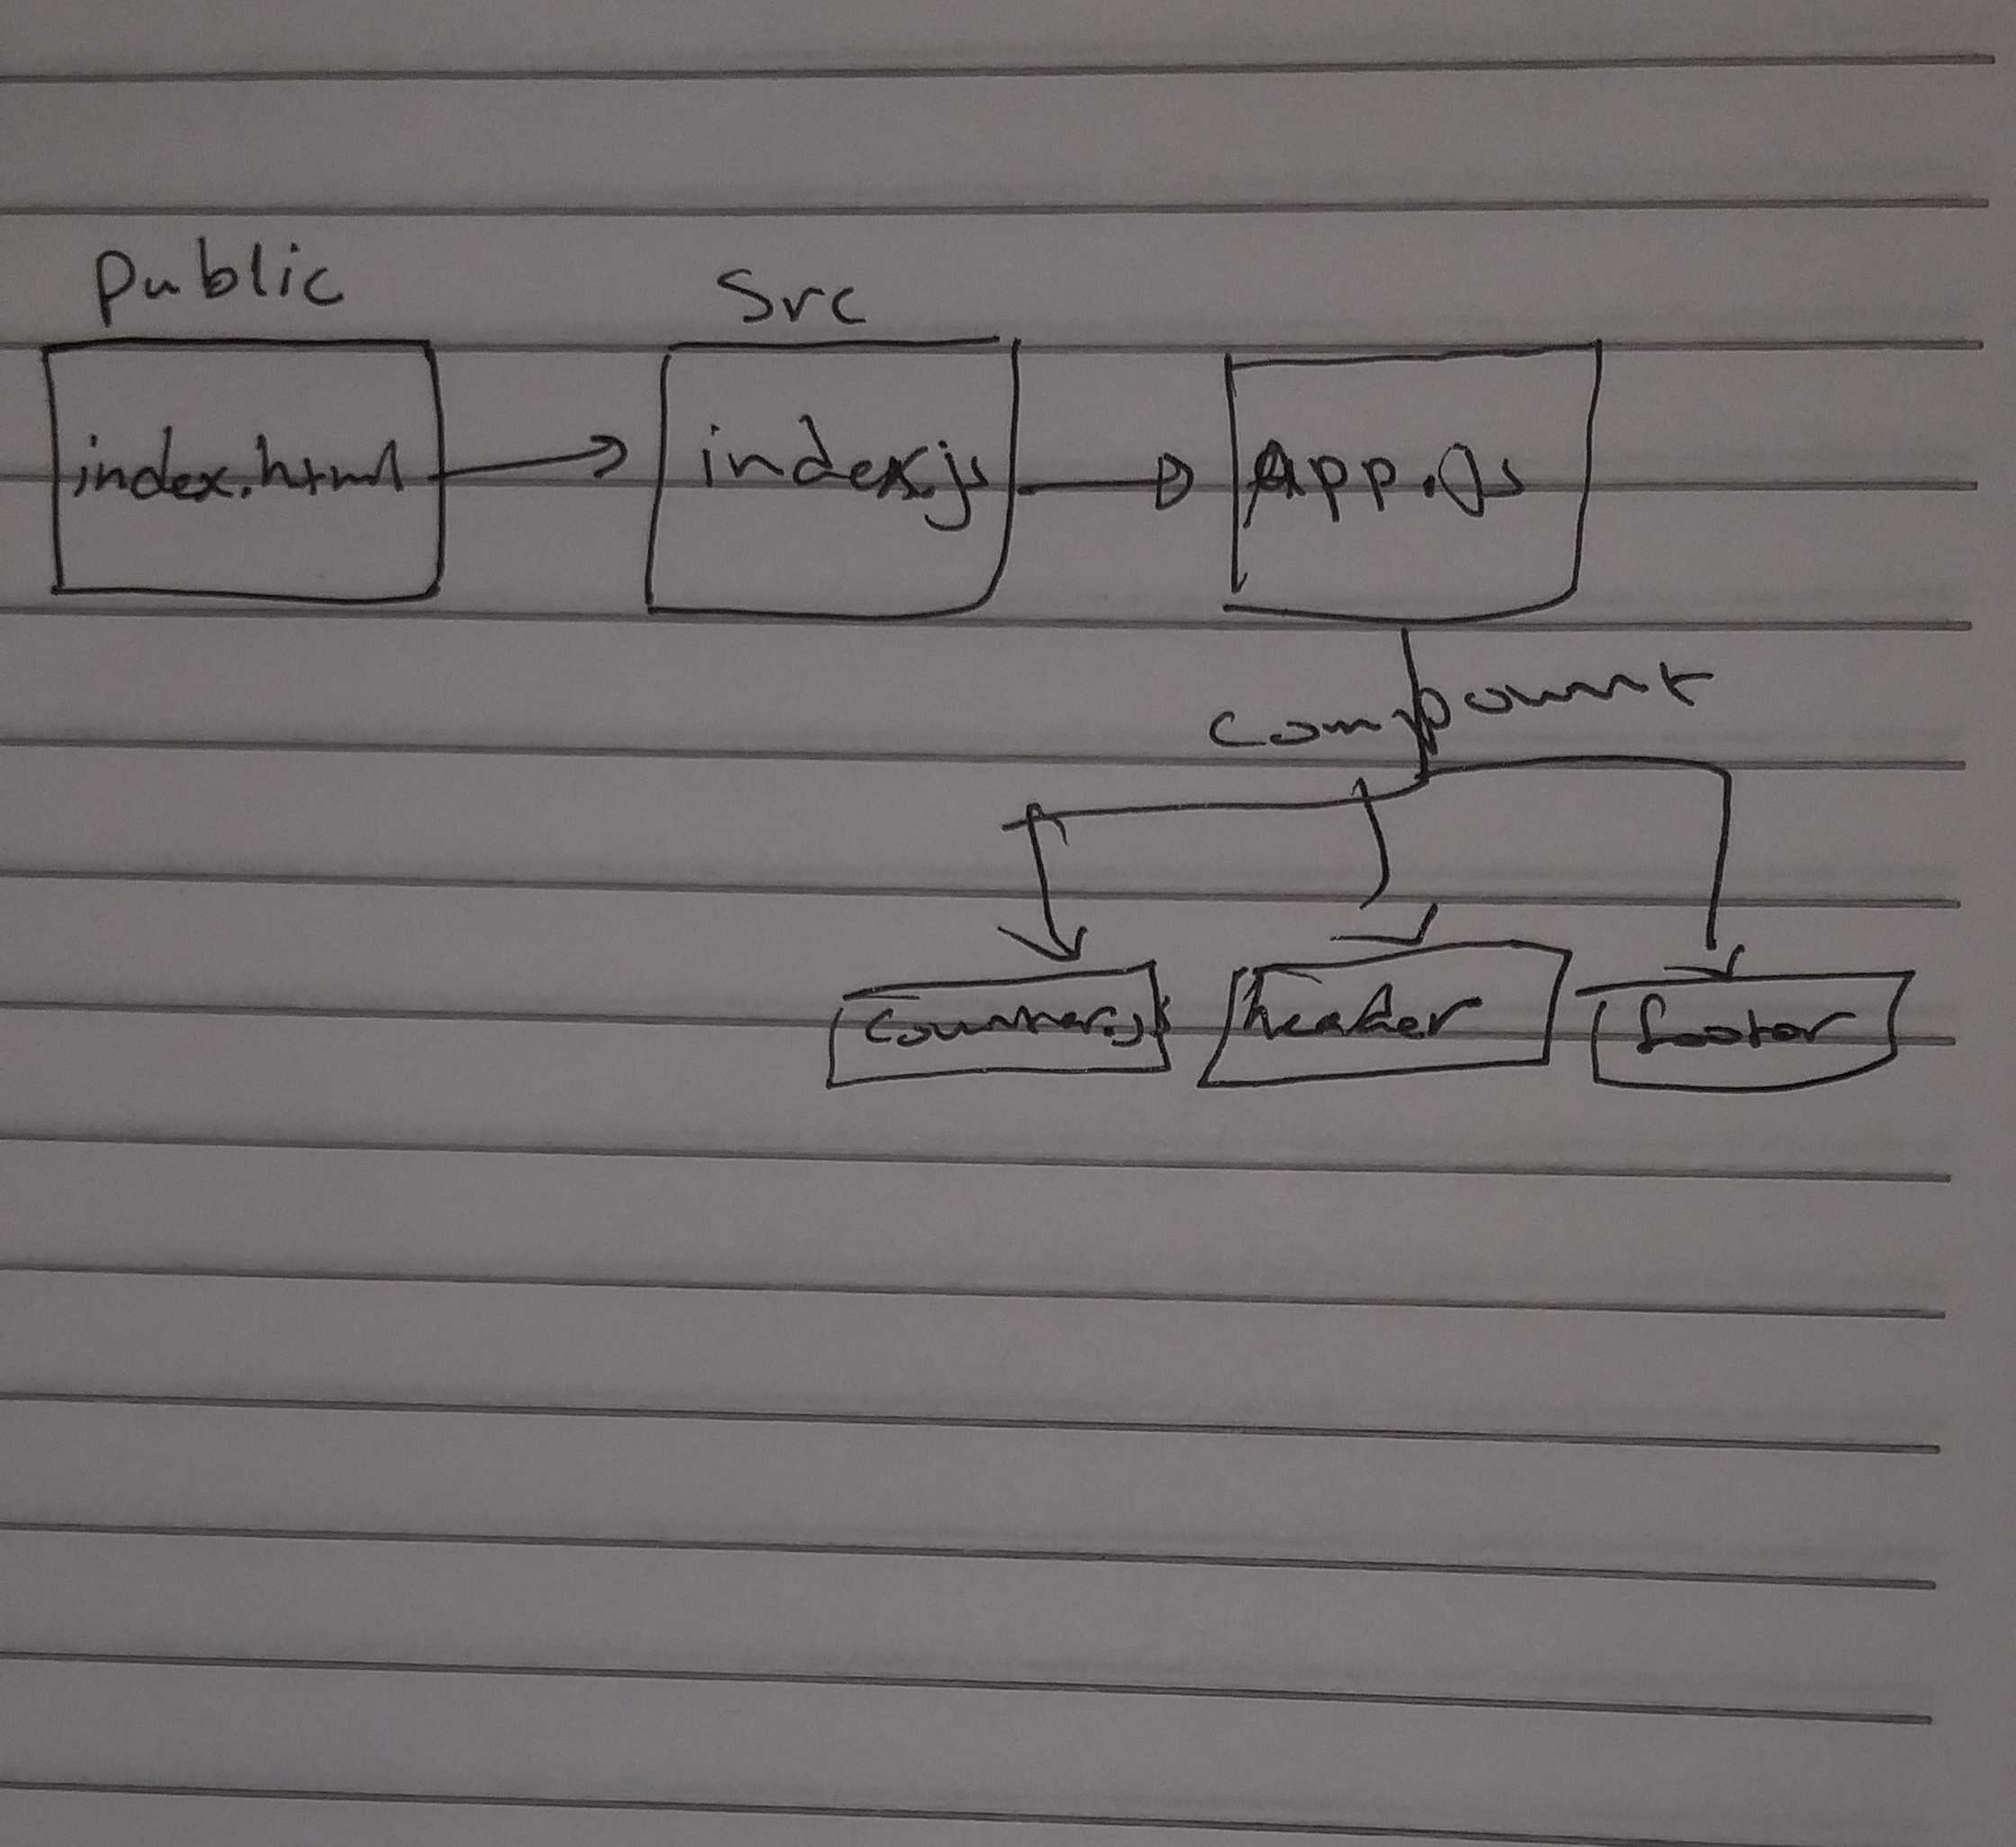 public
Src
index.html
index.js
App.Js
compount
counter.js
header
footer